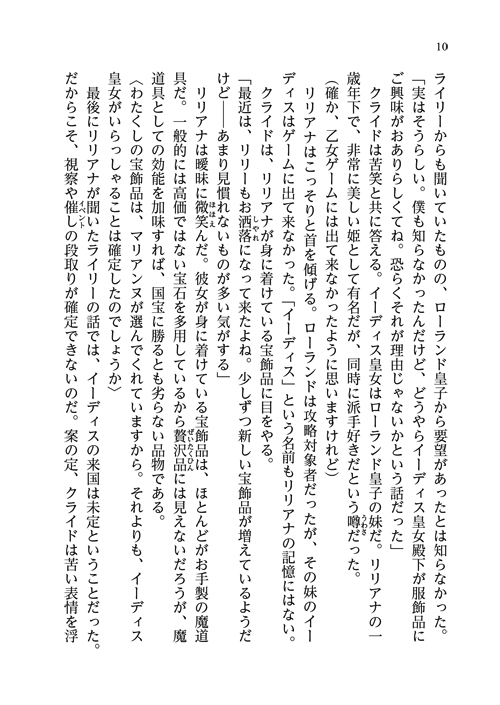 10
ライリーからも聞いていたものの、ローランド皇子から要望があったとは知らなかった。
「実はそうらしい。僕も知らなかったんだけど、どうやらイーディス皇女殿下が服飾品に
ご興味がおありらしくてね。恐らくそれが理由じゃないかという話だった」
クライドは苦笑と共に答える。イーディス皇女はローランド皇子の妹だ。リリアナの一
歳年下で、非常に美しい姫として有名だが、同時に派手好きだという噂だった。
うわさ
（確か、乙女ゲームには出て来なかったように思いますけれど）
リリアナはこっそりと首を傾げる。ローランドは攻略対象者だったが、その妹のイー
ディスはゲームに出て来なかった。「イーディス」という名前もリリアナの記憶にはない。
クライドは、リリアナが身に着けている宝飾品に目をやる。
「最近は、リリーもお洒落になって来たよね。少しずつ新しい宝飾品が増えているようだ
しゃれ
けど――あまり見慣れないものが多い気がする」
リリアナは曖昧に微笑んだ。彼女が身に着けている宝飾品は、ほとんどがお手製の魔道
ほほえ
具だ。一般的には高価ではない宝石を多用しているから贅沢品には見えないだろうが、魔
ぜいたくひん
道具としての効能を加味すれば、国宝に勝るとも劣らない品物である。
〈わたくしの宝飾品は、マリアンヌが選んでくれていますから。それよりも、イーディス
皇女がいらっしゃることは確定したのでしょうか〉
最後にリリアナが聞いたライリーの話では、イーディスの来国は未定ということだった。
だからこそ、視察や催しの段取りが確定できないのだ。案の定、クライドは苦い表情を浮
イベント